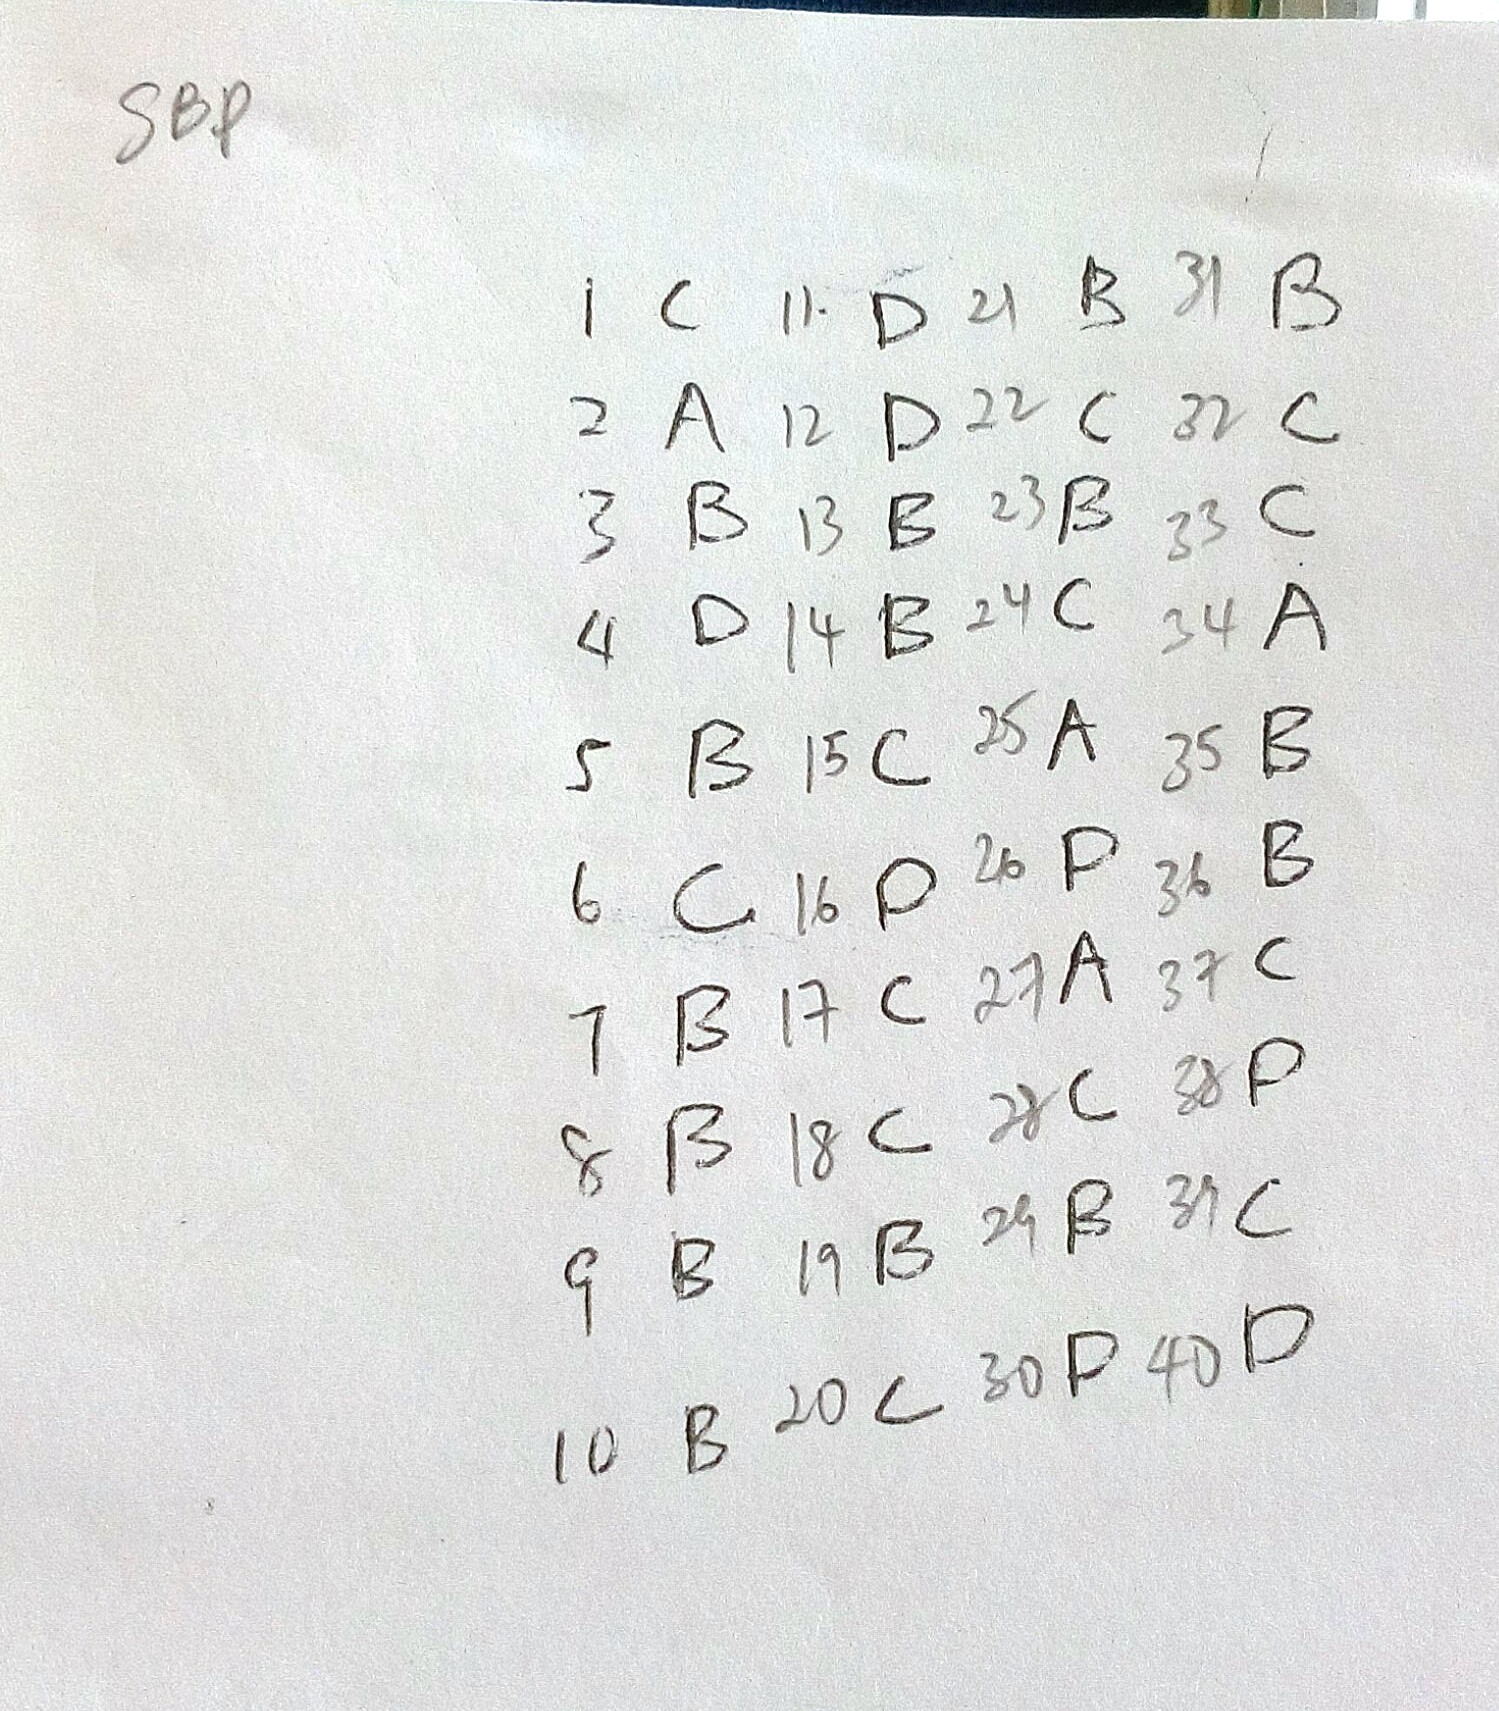 SBP
1 C 11. D 21 B 31 B
2 A 12 D 22 C 32 C
3 B 13 B 23 B 33 C
4 D 14 B 24 C 34 A
5 B 15 C 25 A 35 B
6 C 16 D 26 D 36 B
7 B 17 C 27 A 37 C
8 B 18 C 28 C 38 D
9 B 19 B 29 B 39 C
10 B 20 C 30 D 40 D